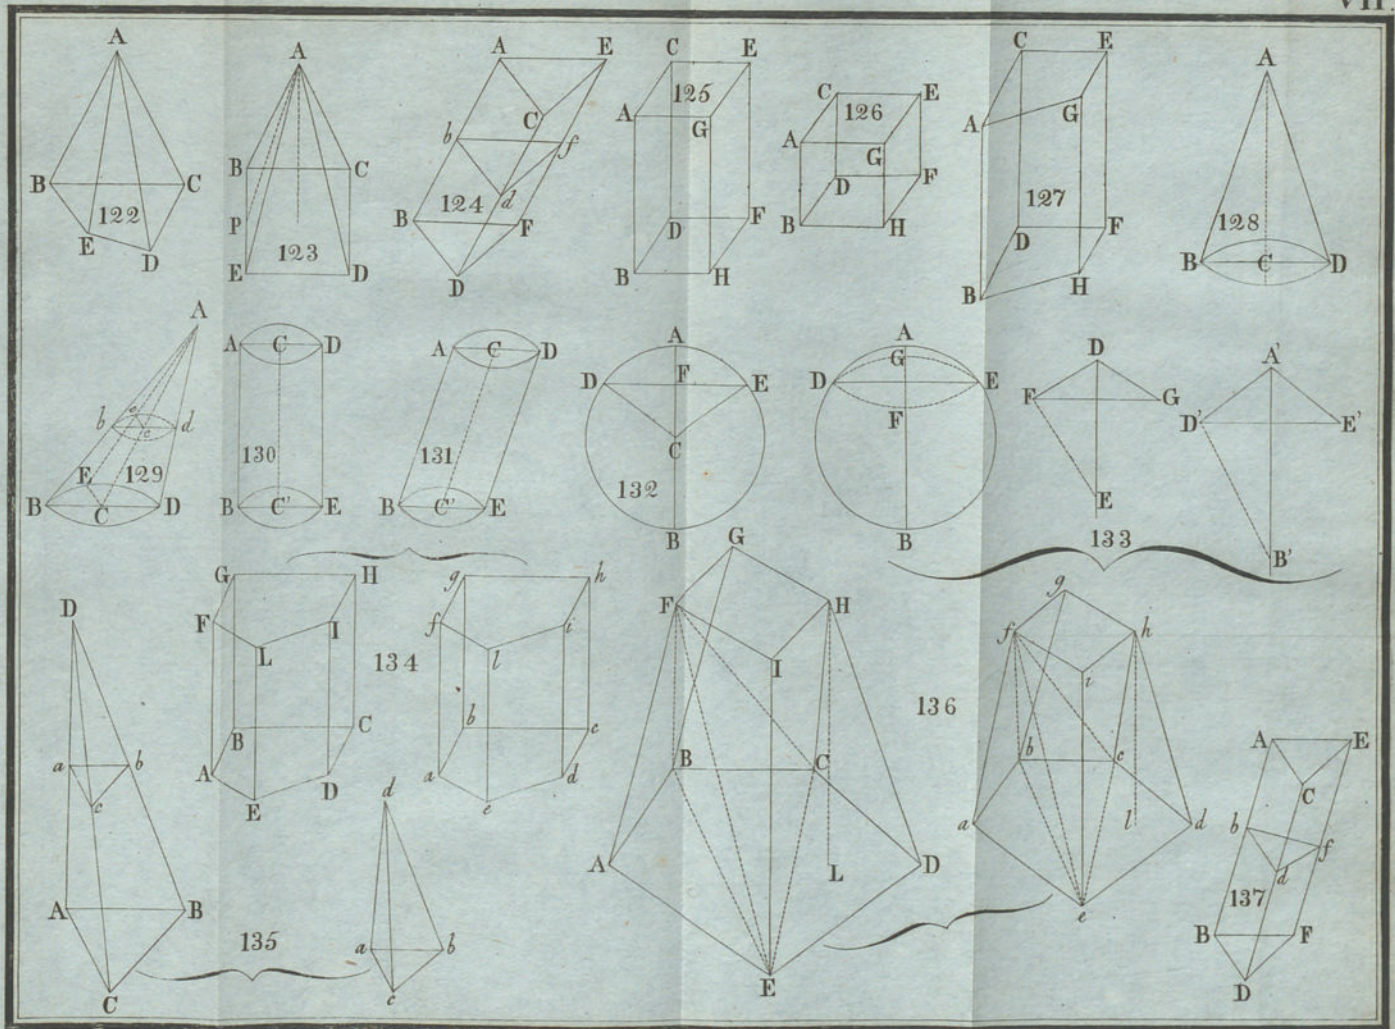 VII.
A
B C
E D
122
A
B C
P
E D
123
A E
C
b f
d
B F
D
124
C E
A G
D F
B H
125
C E
A G
D F
B H
126
C E
A G
D F
B H
127
A
B C D
128
A
b e c d
E
B C D
129
A C D
B C' E
130
A C D
B C' E
131
A
D F E
C
B
132
A
G
D E
F
B
D
F G
E
A'
D' E'
B'
133
G H
F I
L
B C
A D
E
134
g h
f i
l
b c
a d
e
D
a b
c
A B
C
135
d
a b
c
G
F H
I
B C
A L D
E
136
g
f h
i
b c
a l d
e
A E
C
b f
d
B F
D
137